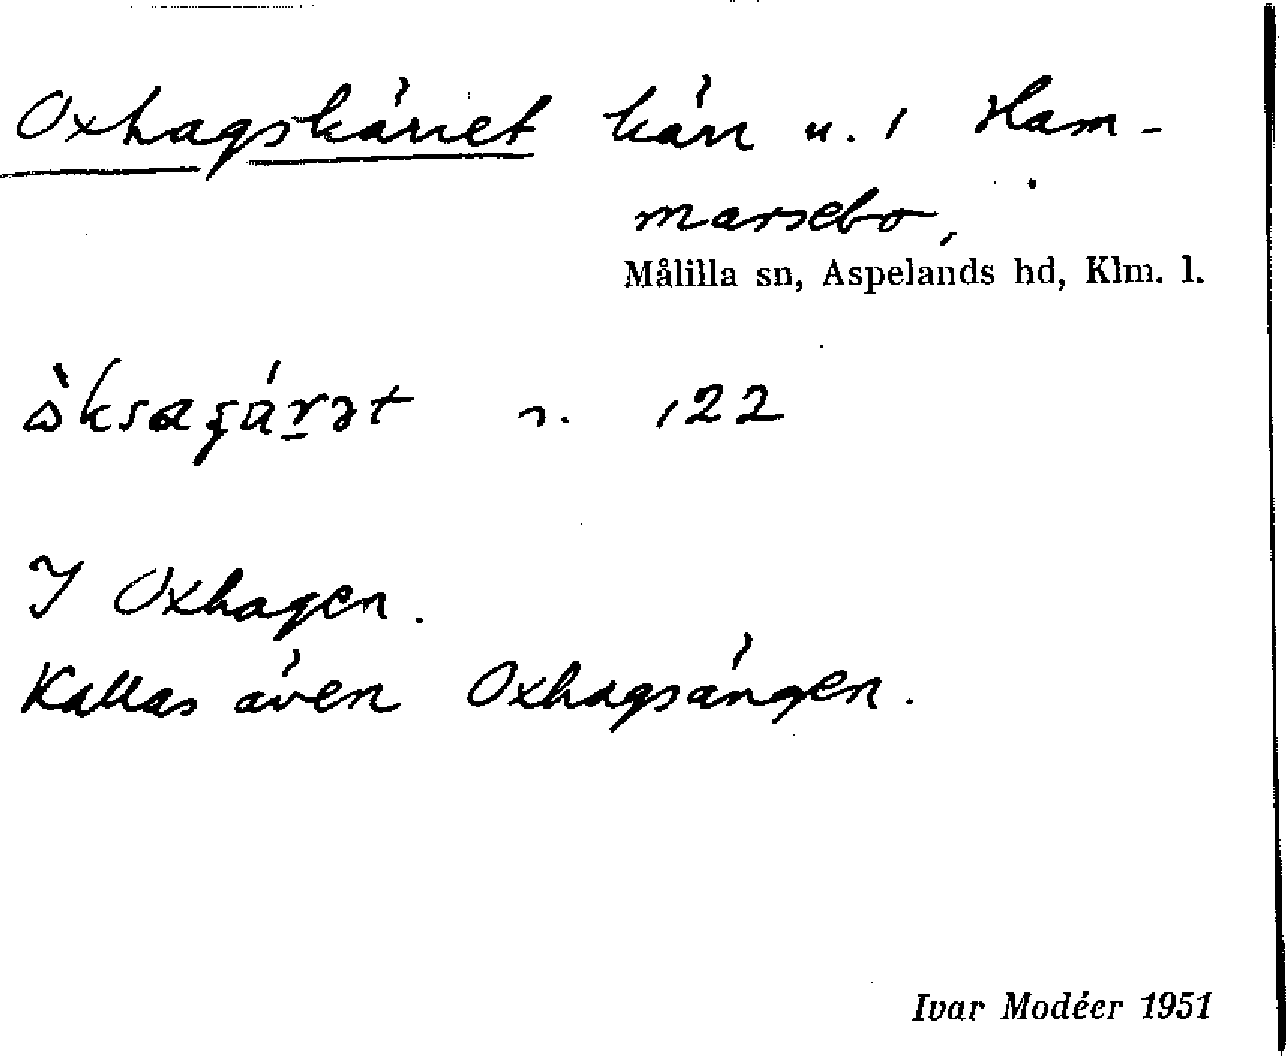 Oxhagskärret kärr u. 1 Ham-
marsebo,
Målilla sn, Aspelands hd, Klm. l.
n. 122
I Oxhagen.
Kallas även Oxhagsängen.
Ivar Modéer 1951